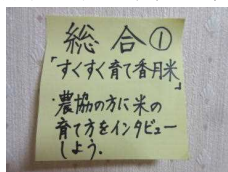 総合①
「すくすく育て香月米」
・農協の方に米の
育て方をインタビュー
しよう.